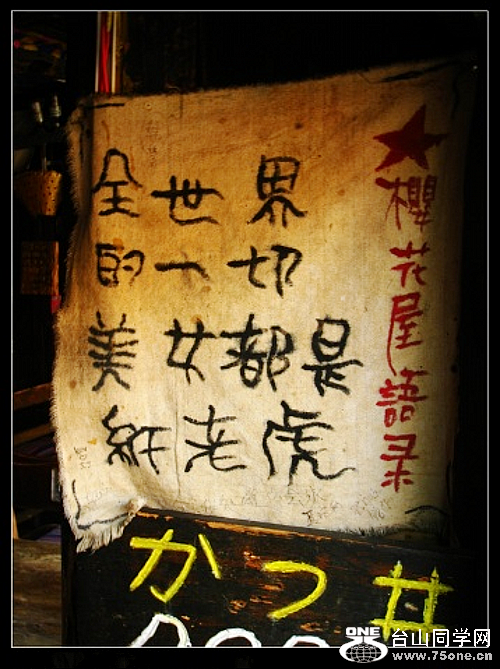 ★櫻花屋語录
全世界
的一切
美女都是
紙老虎
かつ井
ONE
台山同学网
www.75one.cn